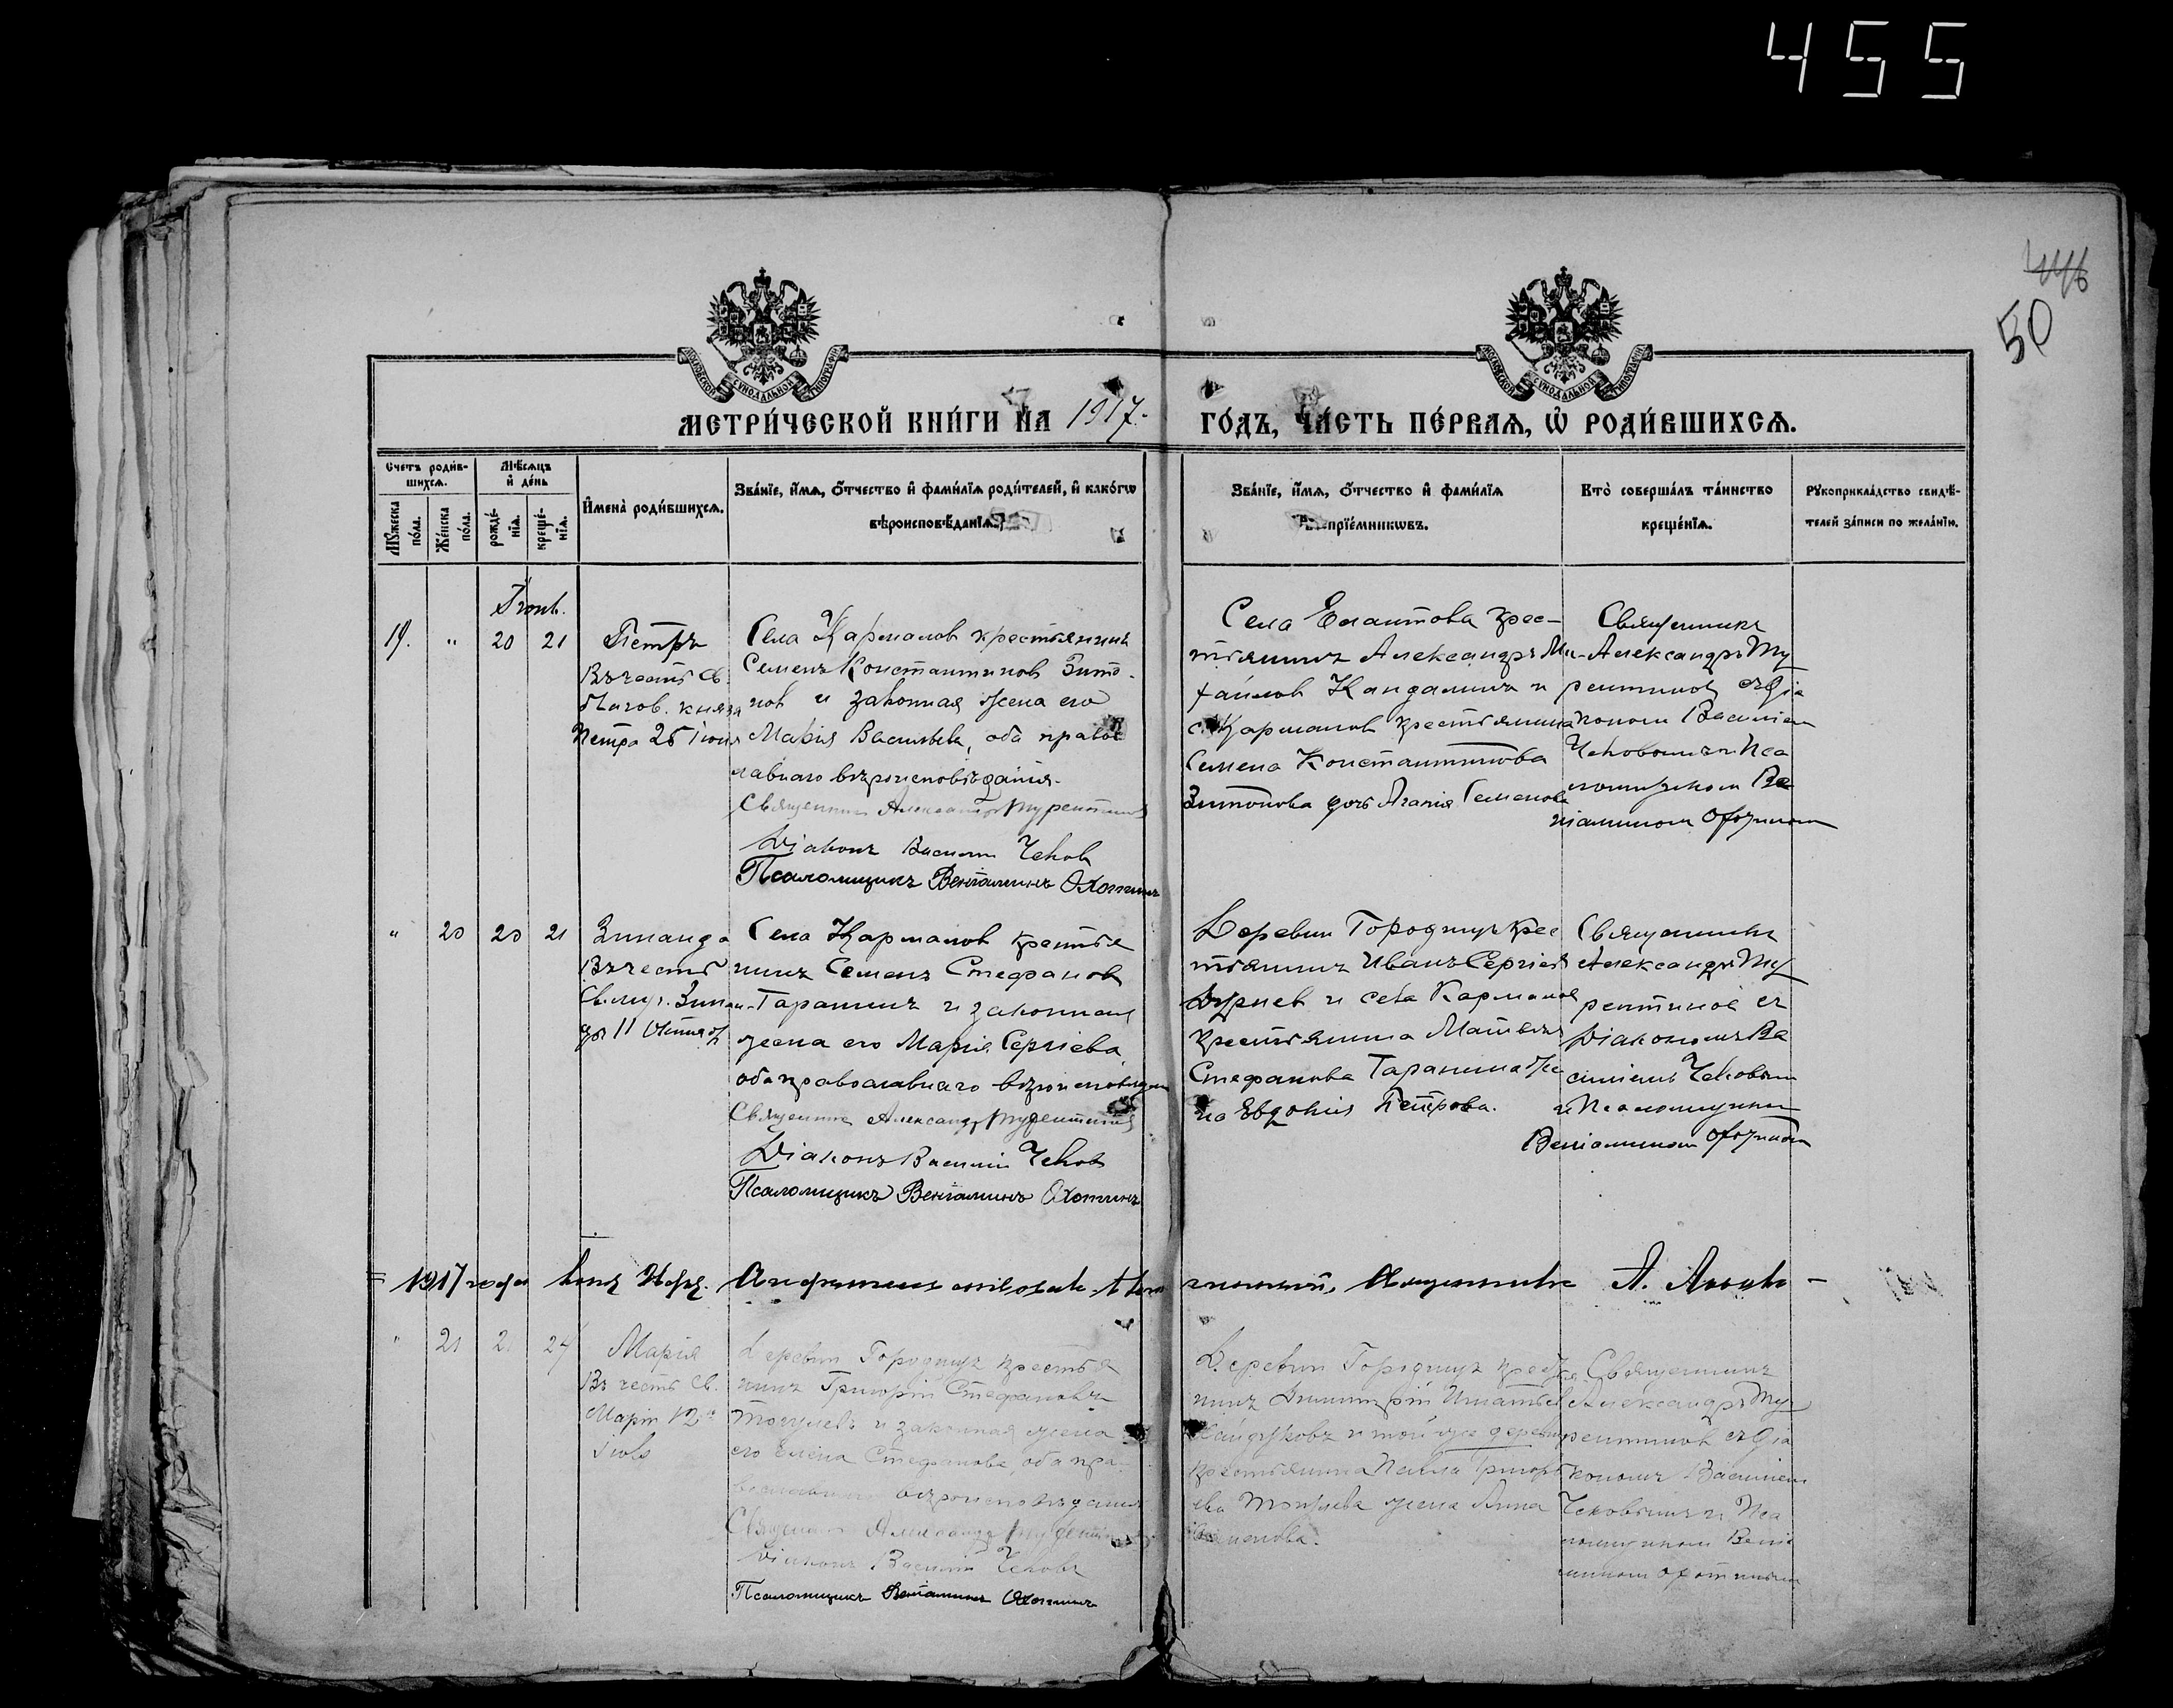 455
446
50
МЕТРИ́ЧЕСКОЙ КНИ́ГИ НА 1917.
ГО́ДЪ, ЧА́СТЬ ПЕ́РВАѦ, Ѡ҆ РОДИ́ВШИХСѦ.
Счетъ роди́в-
шихсѧ.
Мѣ́сѧцъ
и҆ де́нь
Мꙋ́жеска
по́ла.
Же́нска
по́ла.
рожде́-
нїѧ.
креще́-
нїѧ.
И҆мена̀ роди́вшихсѧ.
Зва́нїе, и҆́мѧ, ѻ҆́тчество и҆ фами́лїѧ роди́телей, и҆ како́гѡ
вѣроисповѣ́данїѧ.
Зва́нїе, и҆́мѧ, ѻ҆́тчество и҆ фами́лїѧ
прїе́мникѡвъ.
Кто̀ соверша́лъ та́инство
креще́нїѧ.
Рꙋкоприкла́дство свидѣ́-
телей за́писи по жела́нїю.
Іюнь.
19. " 20 21
Петръ
Въ честь св.
благов. князя
Петра 25 Іюня
Села Карманов крестьянинъ
Семенъ Константинов Зито-
нов и законная жена его
Марія Васильева, оба право
славнаго вѣроисповѣданія.
Священник Александр Турентинов
Діаконъ Василий Чеков
Псаломщикъ Веніаминъ Охотинъ
Села Елатова крес-
тьянинъ Александръ Ми-
хайлов Кандалинъ и
с. Карманов крестьянина
Семена Константинова
Зитонова дочь Агапія Семенова
Священникъ
Александръ Ту
рентинов съ діа
кономъ Василіем
Чековымъ и Пса
ломщиком Ве
ніамином Охотином
" 20 20 21
Зинаида
Въ честь
Св. муч. Зинаи-
ды 11 Октяб
Села Карманов крестья
нинъ Семенъ Стефанов
Таранинъ и законная
жена его Марія Сергіева
оба православнаго вѣроисповѣдан
Священник Александр Турентинов
Діаконъ Василій Чеков
Псаломщикъ Веніаминъ Охотинъ
Деревни Городищъ крес
тьянинъ Иванъ Сергіев
и села Карманов
крестьянина Матвея
Стефанова Таранина же
на Евдокія Петрова.
Священникъ
Александръ Ту
рентинов съ
Діакономъ Ва
силіемъ Чековым
и Псаломщиком
Веніамином Охотином
1917 года
" 21 2 24
Марія
Въ честь св.
Маріи 12
Деревни Городищъ крестья
нинъ Григорій Стефановъ
и законная жена
его Елена Стефанова, оба пра-
вославнаго вѣроисповѣданія
Священник Александр Турентинов
Діаконъ Василій Чековъ
Псаломщикъ Веніаминъ Охотинъ
Деревни Городищъ крестья
нинъ Димитрій Игнатьев
и той же деревни
крестьянина Павла Григорь
ева жена Анна
Семенова.
Священникъ
Александръ Ту
рентинов съ діа
кономъ Василіем
Чековымъ и Пса
ломщиком Вені
амином Охотином